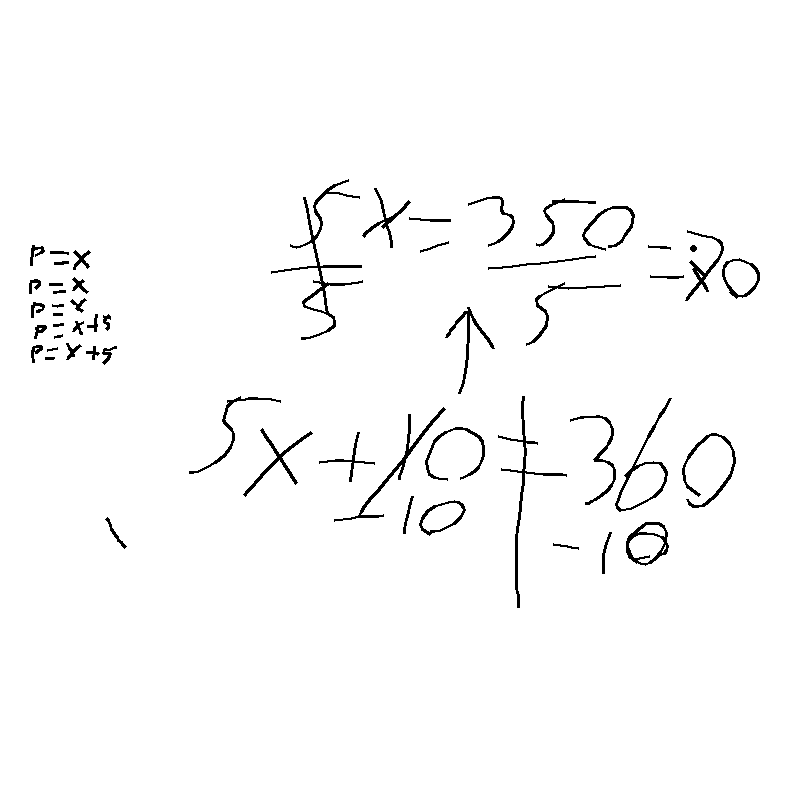 P=x
P=x
P=x
P=x+5
P=x+5
5x=350 =70
5 5
5x+10=360
-10 -10